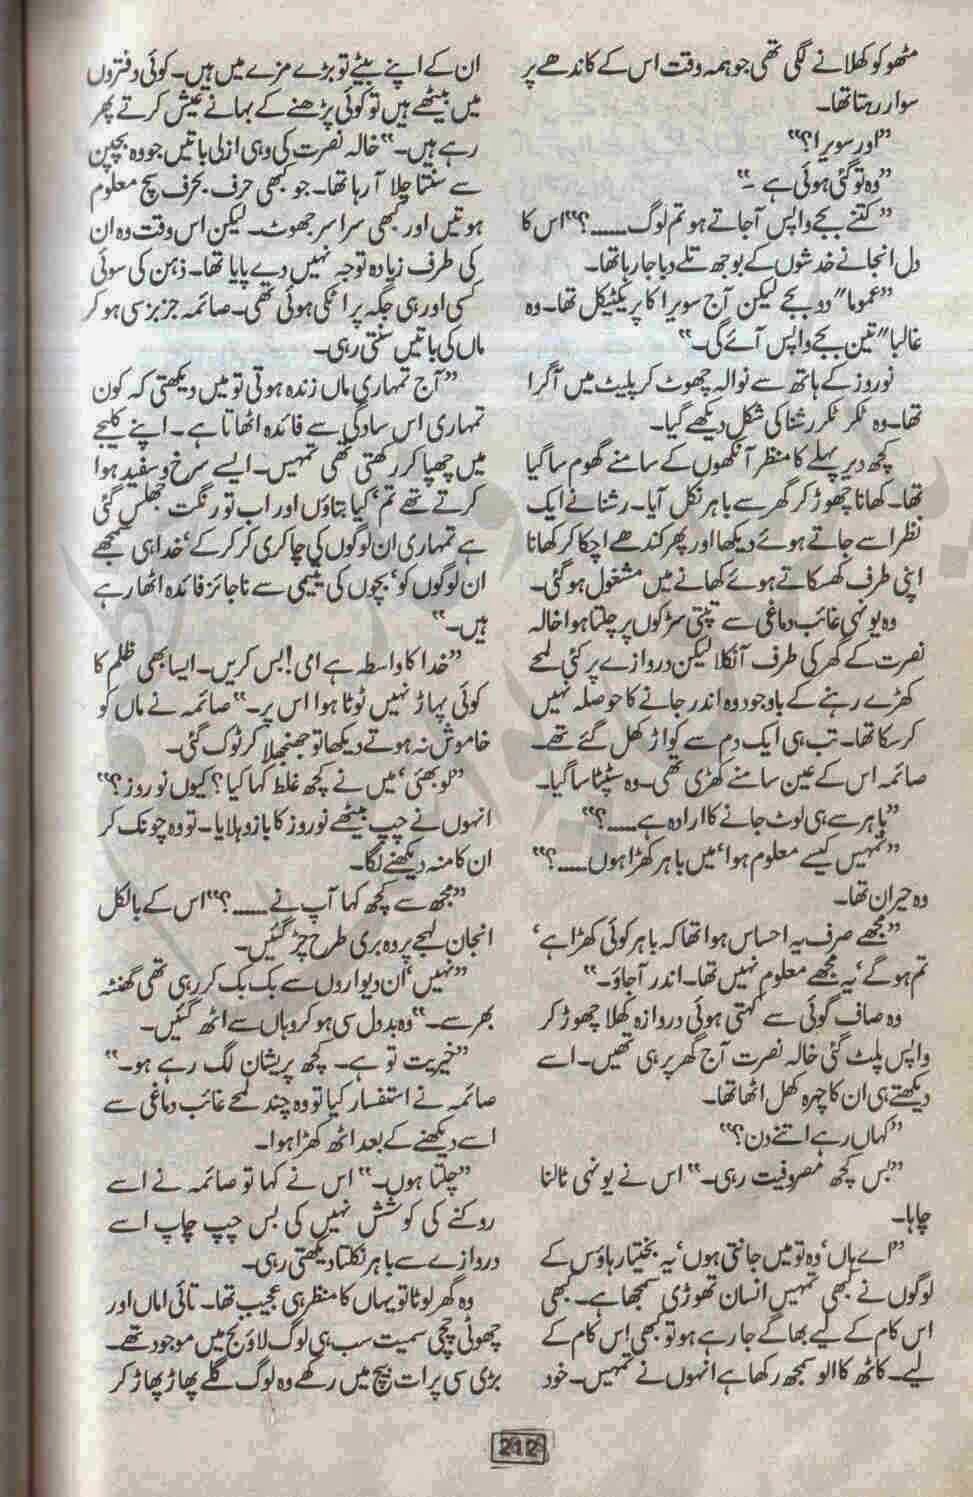 مٹھو کو کھلانے لگی تھی جو ہمہ وقت اس کے کاندھے پر
سوار رہتا تھا۔
”اور سویرا؟“
”وہ تو گئی ہوئی ہے۔“
”کتنے بجے واپس آجاتے ہو تم لوگ ......؟“ اس کا
دل انجانے خدشوں کے بوجھ تلے دبا جارہا تھا۔
”عموما“ دو بجے لیکن آج سویرا کا پریکٹیکل تھا۔ وہ
غالبا“ تین بجے واپس آئے گی۔“
نوروز کے ہاتھ سے نوالہ چھوٹ کر پلیٹ میں آگرا
تھا۔ وہ ٹکر ٹکر رشنا کی شکل دیکھے گیا۔
کچھ دیر پہلے کا منظر آنکھوں کے سامنے گھوم سا گیا
تھا۔ کھانا چھوڑ کر گھر سے باہر نکل آیا۔ رشنا نے ایک
نظر اسے جاتے ہوئے دیکھا اور پھر کندھے اچکا کر کھانا
اپنی طرف کھسکاتے ہوئے کھانے میں مشغول ہوگئی۔
وہ یونہی غائب دماغی سے تپتی سڑکوں پر چلتا ہوا خالہ
نصرت کے گھر کی طرف آنکلا لیکن دروازے پر کئی لمحے
کھڑے رہنے کے باوجود وہ اندر جانے کا حوصلہ نہیں
کرسکا تھا۔ تب ہی ایک دم سے کواڑ کھل گئے تھے۔
صائمہ اس کے عین سامنے کھڑی تھی۔ وہ سٹپٹا سا گیا۔
”باہر سے ہی لوٹ جانے کا ارادہ ہے ......؟“
”تمہیں کیسے معلوم ہوا‘ میں باہر کھڑا ہوں ......؟“
وہ حیران تھا۔
”مجھے صرف یہ احساس ہوا تھا کہ باہر کوئی کھڑا ہے‘
تم ہو گے‘ یہ مجھے معلوم نہیں تھا۔ اندر آجاؤ۔“
وہ صاف گوئی سے کہتی ہوئی دروازہ کھلا چھوڑ کر
واپس پلٹ گئی خالہ نصرت آج گھر پر ہی تھیں۔ اسے
دیکھتے ہی ان کا چہرہ کھل اٹھا تھا۔
”کہاں رہے اتنے دن؟“
”بس کچھ مصروفیت رہی۔“ اس نے یونہی ٹالنا
چاہا۔
”اے ہاں‘ وہ تو میں جانتی ہوں‘ یہ بختیار ہاؤس کے
لوگوں نے کبھی تمہیں انسان تھوڑی سمجھا ہے۔ کبھی
اس کام کے لیے بھاگے جارہے ہو تو کبھی اس کام کے
لیے۔ کاٹھ کا الو سمجھ رکھا ہے انہوں نے تمہیں۔ خود
ان کے اپنے بیٹے تو بڑے مزے میں ہیں۔ کوئی دفتروں
میں بیٹھے ہیں تو کوئی پڑھنے کے بہانے عیش کرتے پھر
رہے ہیں۔“ خالہ نصرت کی وہی ازلی باتیں جو وہ بچپن
سے سنتا چلا آرہا تھا۔ جو کبھی حرف بحرف سچ معلوم
ہوتیں اور کبھی سراسر جھوٹ۔ لیکن اس وقت وہ ان
کی طرف زیادہ توجہ نہیں دے پایا تھا۔ ذہن کی سوئی
کسی اور ہی جگہ پر اٹکی ہوئی تھی۔ صائمہ جزبز سی ہو کر
ماں کی باتیں سنتی رہی۔
”آج تمہاری ماں زندہ ہوتی تو میں دیکھتی کہ کون
تمہاری اس سادگی سے فائدہ اٹھاتا ہے۔ اپنے کلیجے
میں چھپا کر رکھتی تھی تمہیں۔ ایسے سرخ و سفید ہوا
کرتے تھے تم‘ کیا بتاؤں اور اب تو رنگت جھلس گئی
ہے تمہاری ان لوگوں کی چاکری کر کر کے‘ خدا ہی سمجھے
ان لوگوں کو‘ بچوں کی یتیمی سے ناجائز فائدہ اٹھا رہے
ہیں۔“
”خدا کا واسطہ ہے امی! بس کریں۔ ایسا بھی ظلم کا
کوئی پہاڑ نہیں ٹوٹا ہوا اس پر۔“ صائمہ نے ماں کو
خاموش نہ ہوتے دیکھا تو جھنجھلا کر ٹوک گئی۔
”لو بھئی‘ میں نے کچھ غلط کہا کیا؟ کیوں نوروز؟“
انہوں نے چپ بیٹھے نوروز کا بازو ہلایا۔ تو وہ چونک کر
ان کا منہ دیکھنے لگا۔
”مجھ سے کچھ کہا آپ نے ......؟“ اس کے بالکل
انجان لہجے پر وہ بری طرح چڑ گئیں۔
”نہیں‘ ان دیواروں سے بک بک کر رہی تھی گھنٹہ
بھر سے۔“ وہ بددل سی ہو کر وہاں سے اٹھ گئیں۔
”خیریت تو ہے۔ کچھ پریشان لگ رہے ہو۔“
صائمہ نے استفسار کیا تو وہ چند لمحے غائب دماغی سے
اسے دیکھنے کے بعد اٹھ کھڑا ہوا۔
”چلتا ہوں۔“ اس نے کہا تو صائمہ نے اسے
روکنے کی کوشش نہیں کی بس چپ چاپ اسے
دروازے سے باہر نکلتا دیکھتی رہی۔
وہ گھر لوٹا تو یہاں کا منظر ہی عجیب تھا۔ تائی اماں اور
چھوٹی چچی سمیت سب ہی لوگ لاؤنج میں موجود تھے۔
بڑی سی پرات بیچ میں رکھے وہ لوگ گلے پھاڑ پھاڑ کر
212